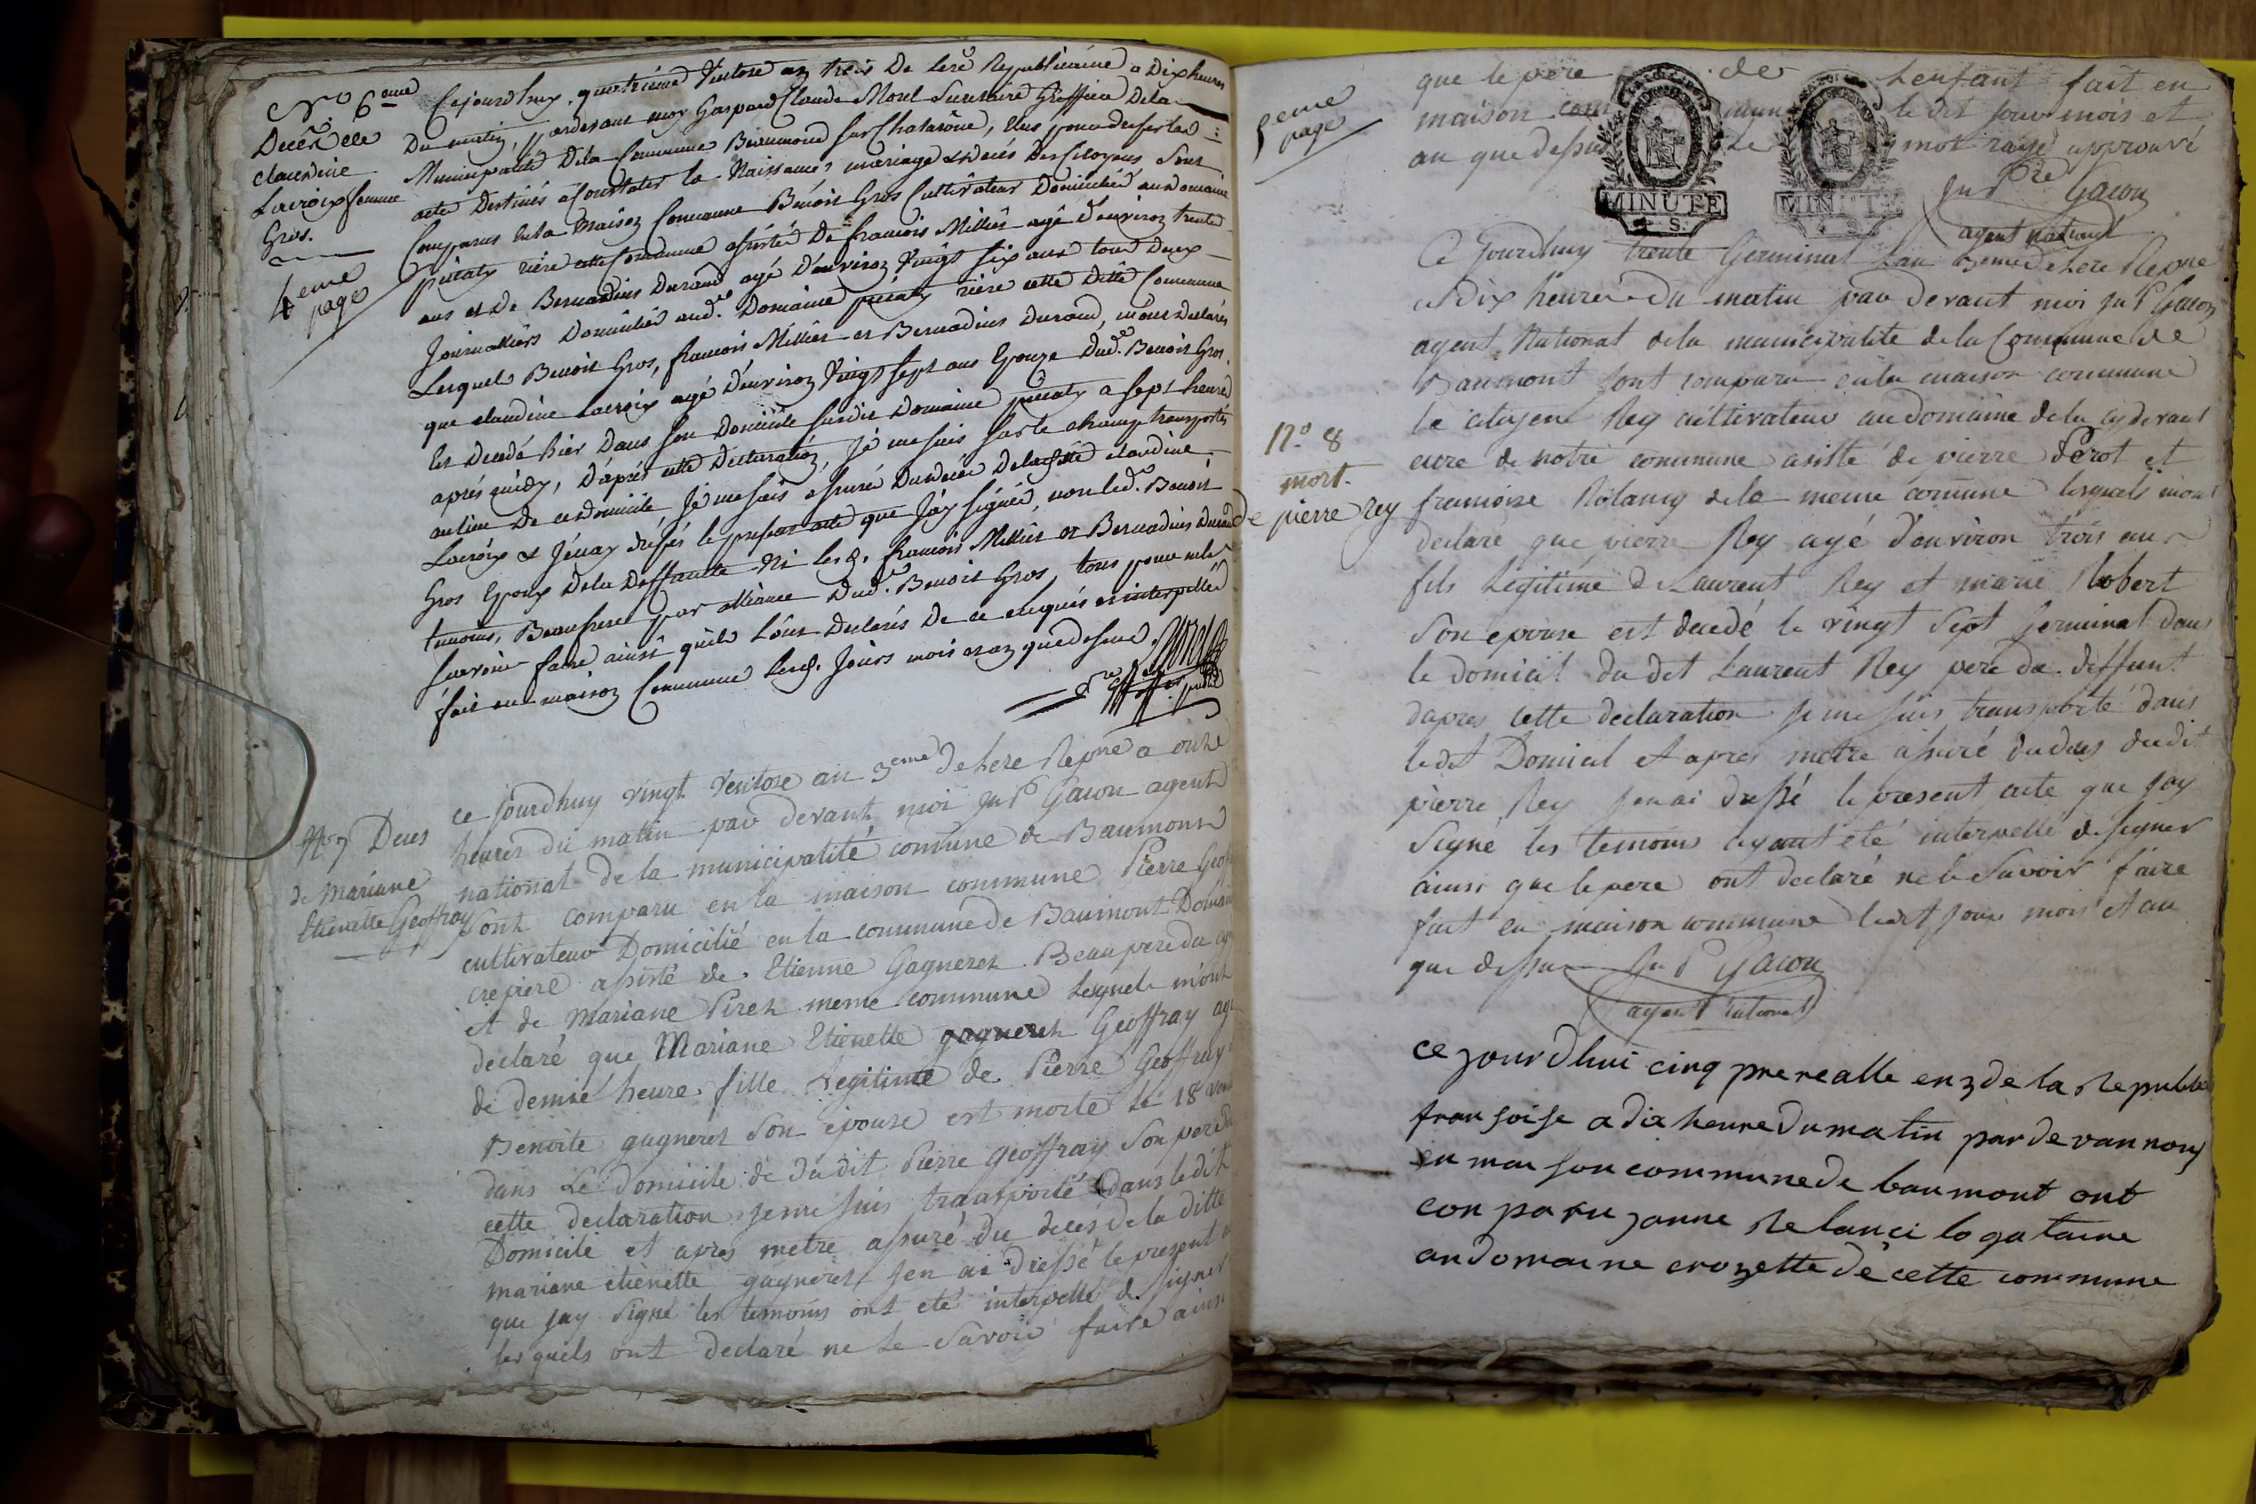 N.º 6eme
Decès de
claudine
Lacroix femme
Gros.
4eme
page
Cejourdhuy quatrième Ventose an trois De Lere Republicaine a Dix heures
Du matin, pardevant moy Gaspard Claude Morel Secretaire Greffier Dela
Municipalité Dela Commune Beaumond sur Chalarône, Elus pour dresser les
acte Destinés a Constater la Naissance, mariage & decés Des Citoyens Sont
Comparus enla Maison Commune Benoit Gros Cultivateur Domicilié au domaine
rière cette Commune assisté De francois Millier agé d'environ trente
ans et De Bernardins Durand agé D'environ Vingt six ans tous deux
Journalliers Domiciliés aud. Domaine rière cette Ditte Commune
Lesquels Benoit Gros, francois Millier et Bernadins Durand, mont declarés
que claudine Lacroix agé D'environ Vingt sept ans Epouze Dud. Benoit Gros
Est Decedé hier Dans son Domicile susdit Domaine a sept heures
après midy, D'après cette Declaration, Je me suis sur le champ transportés
aulieu De ce domicile Je me suis assuré Du decée Delaste claudine
Lacroix & J'en ay dréssés le present acte que J'ay signée, non led. Benoit
Gros Epoux Dela Deffuntte Ni les s. francois Millier et Bernadins Durand
temoins, Beaufrere par alliance Dud. Benoit Gros, tous pour ne le
Scavoir faire ainsi quils L'ont Declarés De ce enquis et interpellée
fait en maison Commune Lesd. Jours mois et an que dessus.
No 7 Deces
de Mariane
Etienette Geoffray
ce jourdhuy vingt Ventose an 3eme de Lere Repne a onze
heures du matin par devant moi Jn P Gacon agent
national de la municipalité comune de Baumont
Sont comparu en la maison commune Pierre Geof
cultivateur Domicilié en la commune de Baumont Domain
crepiere assisté de Etienne Gagneret Beaupere du
et de Mariane Piret meme commune Lesquels m'ont
declaré que Mariane Etienette gagneret Geoffray agé
de demie heure fille Legitime de Pierre Geoffray
Benoite gagneret Son epouse est morte Le 18 ven
dans Le Domicile de du dit Pierre Geoffray Son pere
cette declaration je me suis transporté dans ledit
Domicile et apres metre assuré du decés de la ditte
mariane etienette gagneret jen ai dressé le present
que jay signé les temoins ont eté interpellé de signer
lesquels ont declaré ne le savoir faire ainsi
5eme
page
que le pere de Lenfant fait en
maison com mune ledit jour mois et
an que dessus Le mot rayé approuvé
Jn Pre Gacon
agent national
MINUTE
S.
MINUTE
S.
Ce Jourdhuy trente Germinal Lan 3eme de Lere Repne
a dix heure du matin par devant moi Jn P Gacon
agent National de la municipalité de la Commune de
Baumont sont comparu en la maison commune
le citoyen Rey cultivateur au domaine de la cy devant
cure de notre commune assisté de pierre Perot et
francoise Rolancy de la meme comune lesquels mont
declaré que pierre Rey agé d'environ trois ans
fils Legitime de Laurent Rey et marie Robert
Son epouse est decedé le vingt Sept Germinal dans
le domicil du dit Laurent Rey pere du deffunt
dapres cette declaration je me suis transporté dans
ledit Domicil et apres metre assuré du deces dudit
pierre Rey jen ai dressé le present acte que jay
Signé les temoins ayant eté interpellé de signer
ainsi que le pere ont declaré ne le Savoir faire
fait en maison commune ledit jour mois et an
que dessus Jn P Gacon
agent national
N.º 8
mort.
de pierre Rey
ce jourdhui cinq prerealle en 3 de la Republi
fransoise a dix heure du matin par de van nous
en maison commune de baumont ont
conparu janne Relanci logataire
au domaine crozette de cette commune